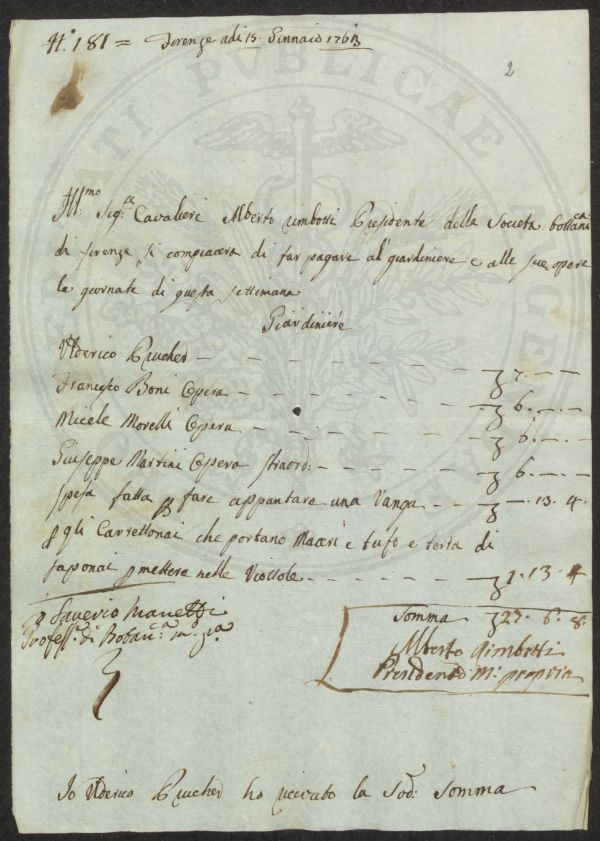 N.° 181 = Firenze adi 15. Gennaio 1763
2
Ill.mo Sig.re Cavaliere Alberto Rimbotti Presidente della Societa bottanica
di firenze si compiacera di far pagare al giardiniere e alle sue opera
le giornate di questa settimana
Giardiniere
Ulderico Prucher — 7. — —
Francesco Boni Opera — 6. — —
Micele Morelli Opera — 6. — —
Giuseppe Martini Opera straord: — 6. — —
spesa fatta p fare appuntare una Vanga — — . 13. 4
p gli Carrettonai che portano Maceri e tufo e terra di
saponai p mettere nelle Viottole — 1. 13. 4
Somma 27. 6. 8.
Saverio Manetti
Profess.e di Botan.ca m.o p.a
Alberto Rimbotti
Presidente M: propria
Io Ulderico Prucher ho ricevuto la Sod.a Somma
PUBLICAE